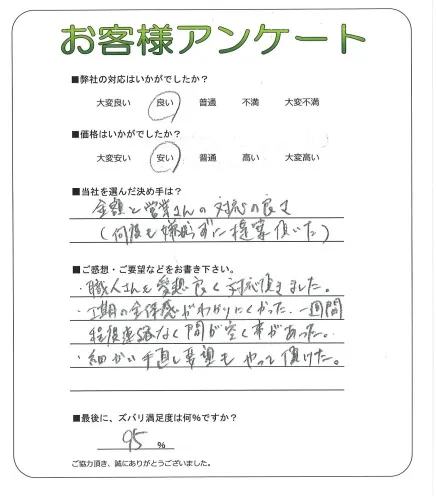 お客様アンケート
■弊社の対応はいかがでしたか？
大変良い 良い 普通 不満 大変不満
■価格はいかがでしたか？
大変安い 安い 普通 高い 大変高い
■当社を選んだ決め手は？
金額と営業さんの対応の良さ
（何度も嫌がらずに提案頂いた）
■ご感想・ご要望などをお書き下さい。
・職人さんも愛想良く対応頂きました。
・工期の全体感がわかりにくかった、一週間
程度連絡なく間が空く事があった。
・細かい手直し要望もやって頂けた。
■最後に、ズバリ満足度は何％ですか？
95 ％
ご協力頂き、誠にありがとうございました。